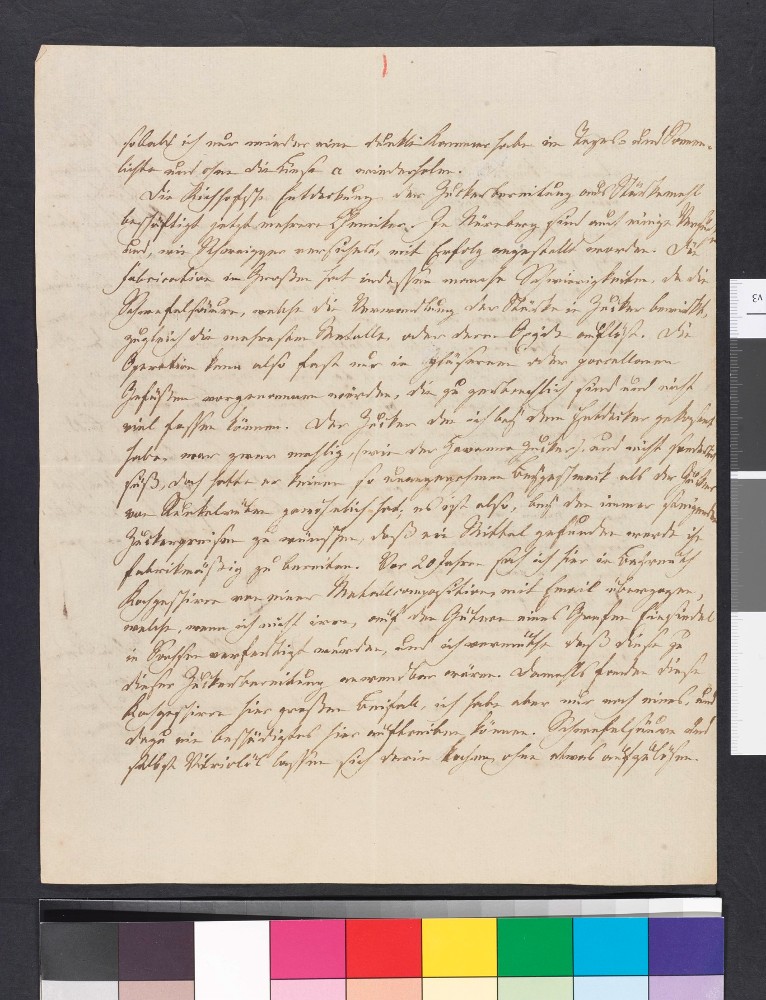 sobald ich nur wieder eine dunkle Kammer habe im Tages- und Sonnen-
lichte und ohne die Linse a wiederholen.
Die Kirchhofsche Entdeckung der Zuckerbereitung aus Stärkemehl
beschäftigt jetzt mehrere Chemiker. In Nürnberg sind auch einige Versuche
und, wie Schweigger versichert, mit Erfolg angestellt worden. Die
Fabrication im Großen hat indessen manche Schwierigkeiten, da die
Schwefelsäure, welche die Verwandlung der Stärke in Zucker bewirkt,
zugleich die mehresten Metalle, oder deren Oxyde auflöst. Die
Operation kann also fast nur in gläsernen oder porcellanen
Gefäßen vorgenommen werden, die zu zerbrechlich sind und nicht
viel fassen können. Der Zucker den ich bey dem Entdecker gekostet
habe war zwar mehlig, (wie der Havanna Zucker), und nicht sonderlich
süß, doch hatte er keinen so unangenehmen Beygeschmack als der Zucker
von Runkelrüben gewöhnlich hat, es ist also, bey den immer steigenden
Zuckerpreisen zu wünschen, daß ein Mittel gefunden werde ihn
fabrikmäßig zu bereiten. Vor 20 Jahren sah ich hier in Bayreuth
Kochgeschirre von einer Metallcomposition, mit Email überzogen,
welche, wenn ich nicht irre, auf den Gütern eines Grafen Einsiedel
in Sachsen verfertigt wurden, und ich vermuthe daß diese zu
dieser Zuckerbereitung anwendbar wären. Damahls fanden diese
Kochgeschirre hier großen Beifall, ich habe aber nur noch eines, und
dazu ein beschädigtes hier auftreiben können. Schwefelsäure und
selbst Vitriolöl lassen sich darin kochen, ohne etwas aufzulösen.